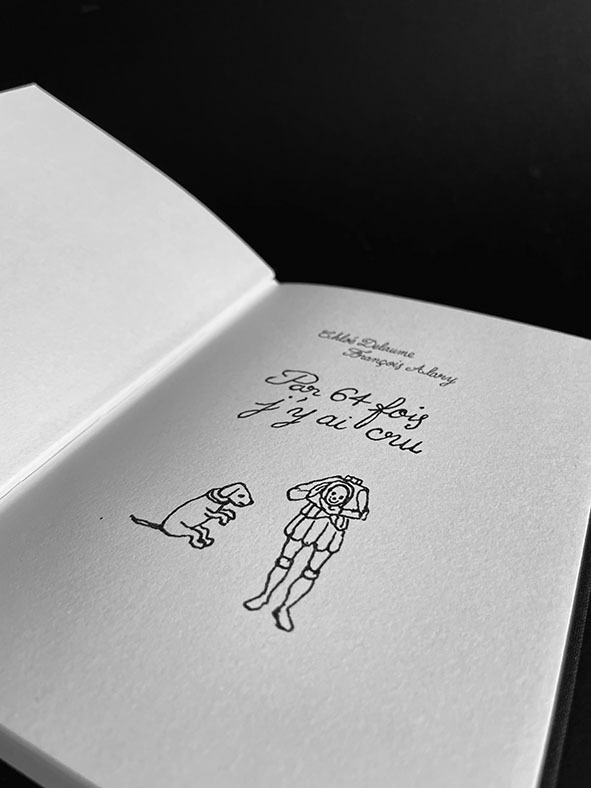 Chloé Delaume
François Alary
Par 64 fois
j'y ai cru